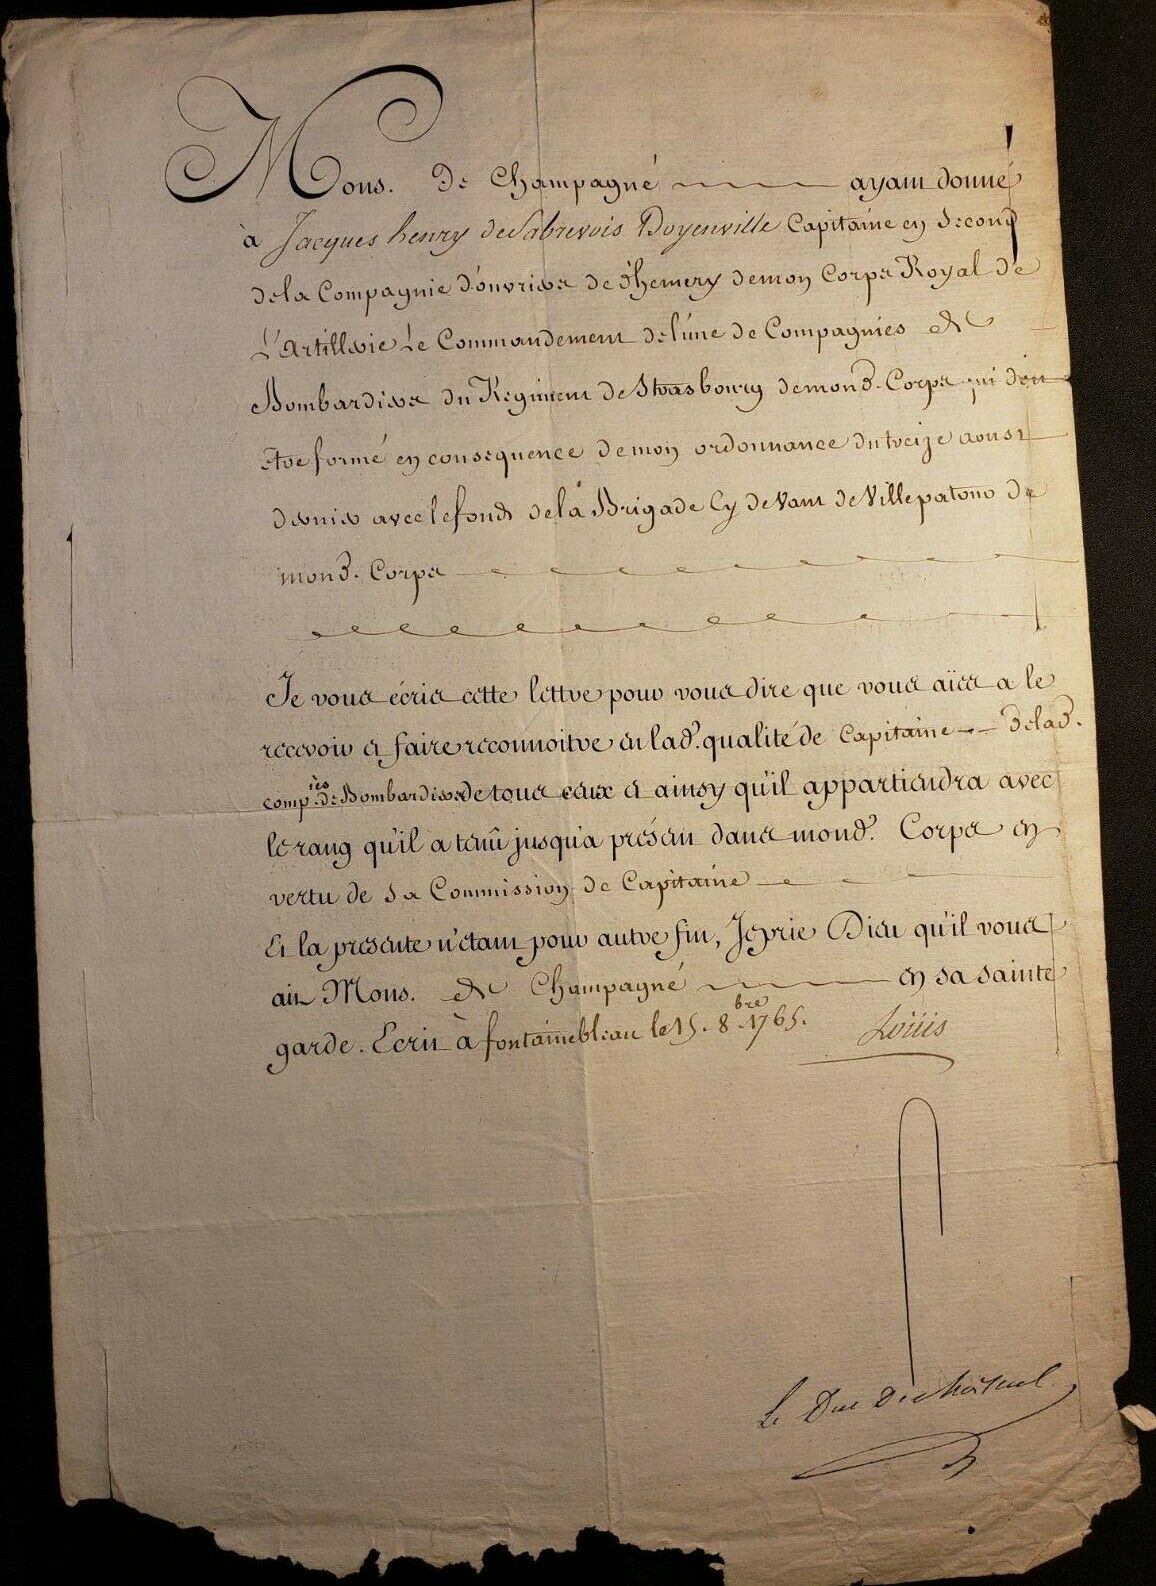 Mons. De Champagné ayant donné
à Jacques henry de Sabrevois Doyenville Capitaine en second
de la Compagnie d'ouvriers de d'hemery de mon Corps Royal de
L'Artillerie Le Commandement de l'une de Compagnies de
Bombardiers du Regiment de Strasbourg de mond. Corps qui doit
être formé en consequence de mon ordonnance du treize aoust
dernier avec le fonds de la Brigade Cy devant de Villepatour de
mond. Corps
Je vous écris cette lettre pour vous dire que vous aïés a le
recevoir et faire reconnoitre en lad. qualité de Capitaine de lad.
comp.ies de Bombardiers de tous ceux et ainsy qu'il appartiendra avec
le rang qu'il a tenû jusqu'a présent dans mond. Corps en
vertu de sa Commission de Capitaine
Et la presente n'étant pour autre fin, Je prie Dieu qu'il vous
ait Mons. de Champagné en sa sainte
garde. Ecrit à fontainebleau le 15. 8.bre 1765. Loüis
Le Duc De choiseul